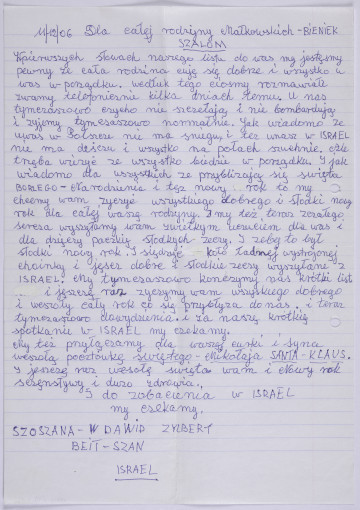 11/12/06 Dla całej rodziny Małkowskich-BIENIEK
SZALOM
W pierwszych słowach naszego listu do was my jesteśmy
pewny że cała rodzina czuję się dobrze i wszystko u
was w porządku. według tego ciośmy rozmawiali
zwamy telefonicznie kilka dniach temu. U nas
tymczasowo cicho nie szczelają i nie bombardują
i żyjemy tymczasowo normalnie. Jak wiadomo że
u was w Polsce nie ma śniegu, i też unas w ISRAEL
nie ma dżeczu i wszystko na polach suche, ale
trzeba wieżyć że wszystko biedzie w porządku. I jak
wiadomo dla wszystkich że przybliżają się święta
BOŻEGO-Narodzenia i też nowy rok to my
chcemy wam życzyć wszystkiego dobrego i słodki nowy
rok dla całej waszej rodziny. I my też teraz z całego
serca wyszyłamy wam z wielkim uczuciem dla was i
dla dzieci paczkie słodkich żeczy. I żeby to był
słodki nowy rok. I siądnie koło ładnej wystrojonej
choinki i jeść dobre i słodkie żeczy wyszyłane z
ISRAEL. My tymczasowo kończymy nas krótki list
i jeszcze raz życzymy wam wszystkiego dobrego
i wesoły cały rok co się przybliża do nas. i teraz
tymczasowo dowidzenia i za naszę krótkie
spotkanie w ISRAEL my czekamy.
My też przyłączamy dla waszej curki i syna
wesołą pocztówkę świętego-Mikołaja SANTA-KLAUS.
I jeszcze raz wesołe święta wam i Nowy rok
szczęśliwy i dużo zdrowia.
I do zobaczenia w ISRAEL
my czekamy.
SZOSZANA-W DAWID ZYLBERT
BEIT-SZAN
ISRAEL